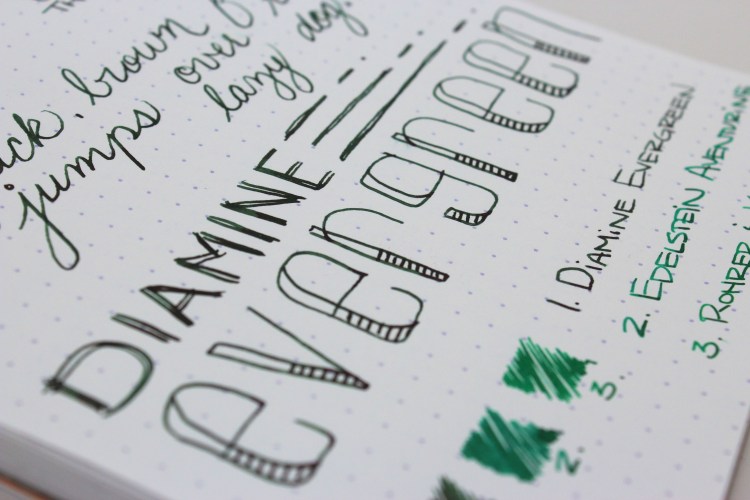 brown
jumps over
lazy dog.
DIAMINE
evergreen
1. DIAMINE EVERGREEN
2. EDELSTEIN AVENTURINE
3. ROHRER
3.
2.